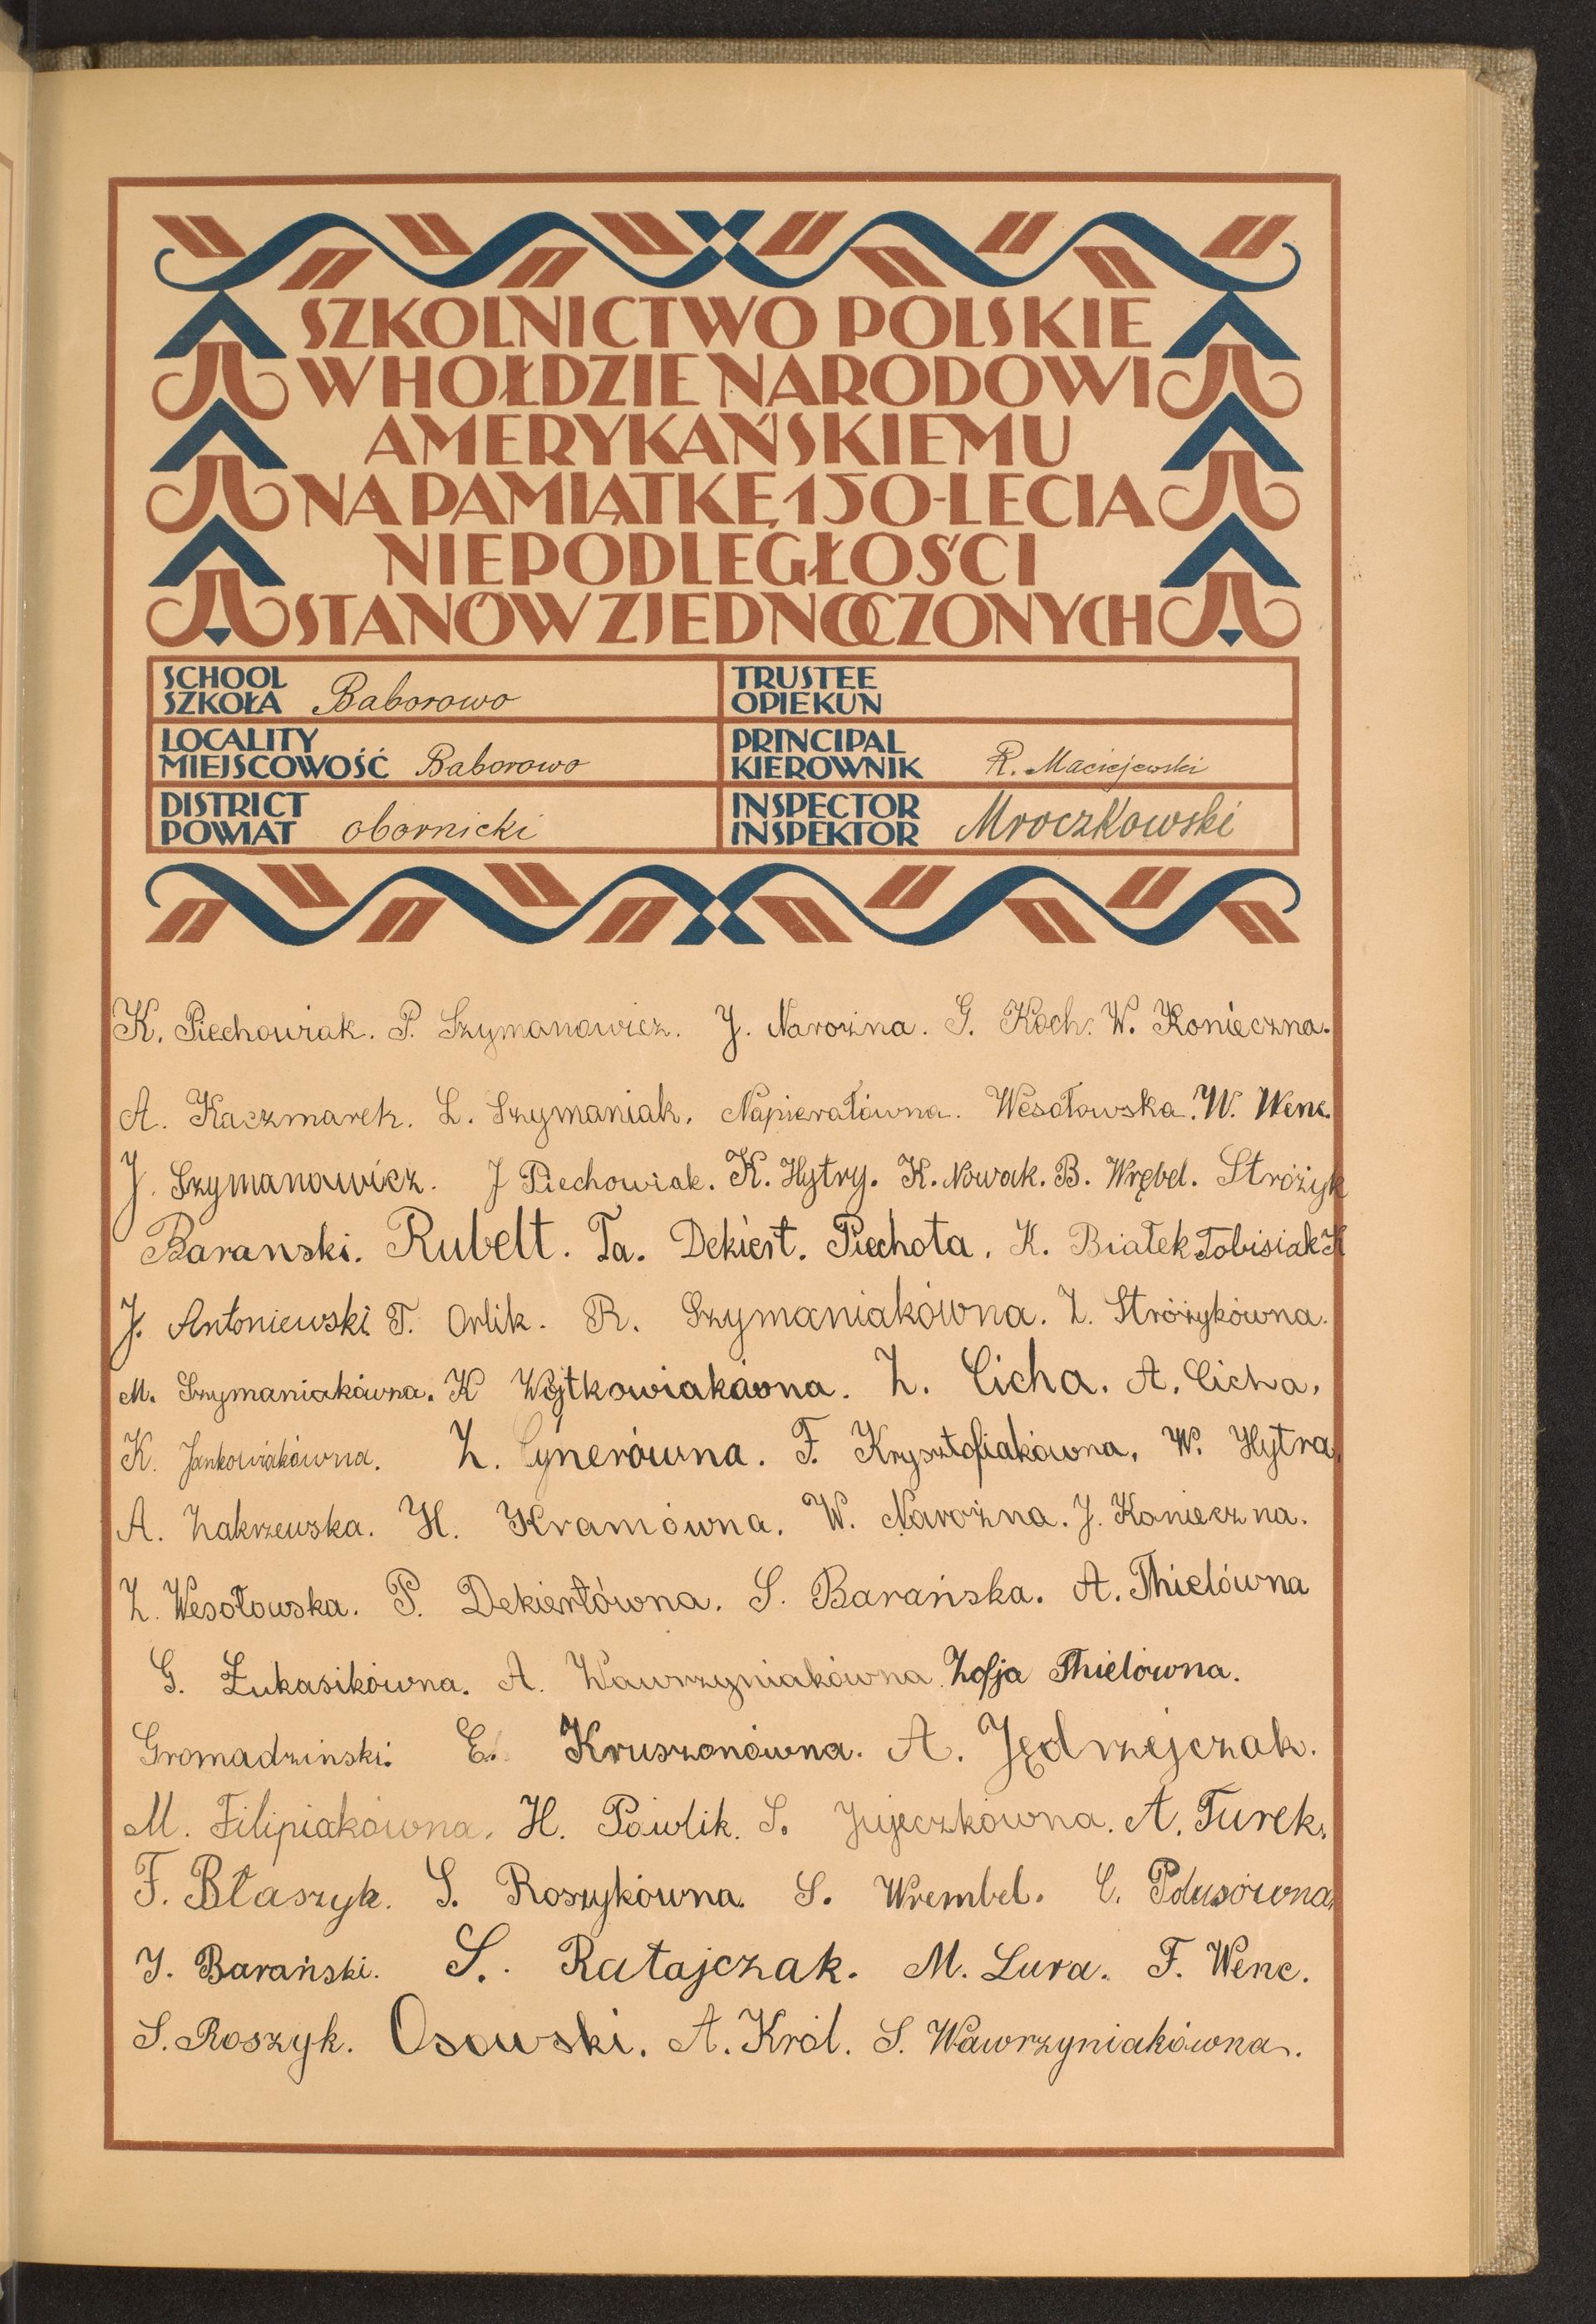 SZKOLNICTWO POLSKIE
W HOŁDZIE NARODOWI
AMERYKAŃSKIEMU
NA PAMIĄTKĘ 150-LECIA
NIEPODLEGŁOŚCI
STANÓW ZJEDNOCZONYCH
SCHOOL
SZKOŁA Baborowo
TRUSTEE
OPIEKUN
LOCALITY
MIEJSCOWOŚĆ Baborowo
PRINCIPAL
KIEROWNIK R. Maciejewski
DISTRICT
POWIAT obornicki
INSPECTOR
INSPEKTOR Mroczkowski
K. Piechowiak. P. Szymanowicz. J. Narożna. G. Koch. W. Konieczna.
A. Kaczmarek. L. Szymaniak. Napierałówna. Wesołowska. W. Wenc.
J. Szymanowicz. J Piechowiak. K. Hytry. K. Nowak. B. Wrębel. Stróżyk
Baranski. Rubelt. Ta. Dekiert. Piechota. K. Białek Tobisiak K
J. Antoniewski T. Orlik. R. Szymaniakówna. Z. Stróżykówna.
M. Szymaniakówna. K Wojtkowiakówna. Z. Cicha. A. Cicha.
K. Jankowiakówna. Z. Cynerówna. F. Krysztofiakówna. W. Hytra.
A. Zakrzewska. H. Kramówna. W. Narożna. J. Konieczna.
Z. Wesołowska. P. Dekiertówna. S. Barańska. A. Thielówna
G. Łukasikówna. A. Wawrzyniakówna. Zofja Thielówna.
Gromadziński. E. Kruszonówna. A. Jędrzejczak.
M. Filipiakówna. H. Pawlik. S. Jujeczkówna. A. Turek.
F. Błaszyk. S. Roszykówna. S. Wrembel. C. Polusówna.
J. Barański. S. Ratajczak. M. Lura. F. Wenc.
S. Roszyk. Osowski. A. Król. S. Wawrzyniakówna.